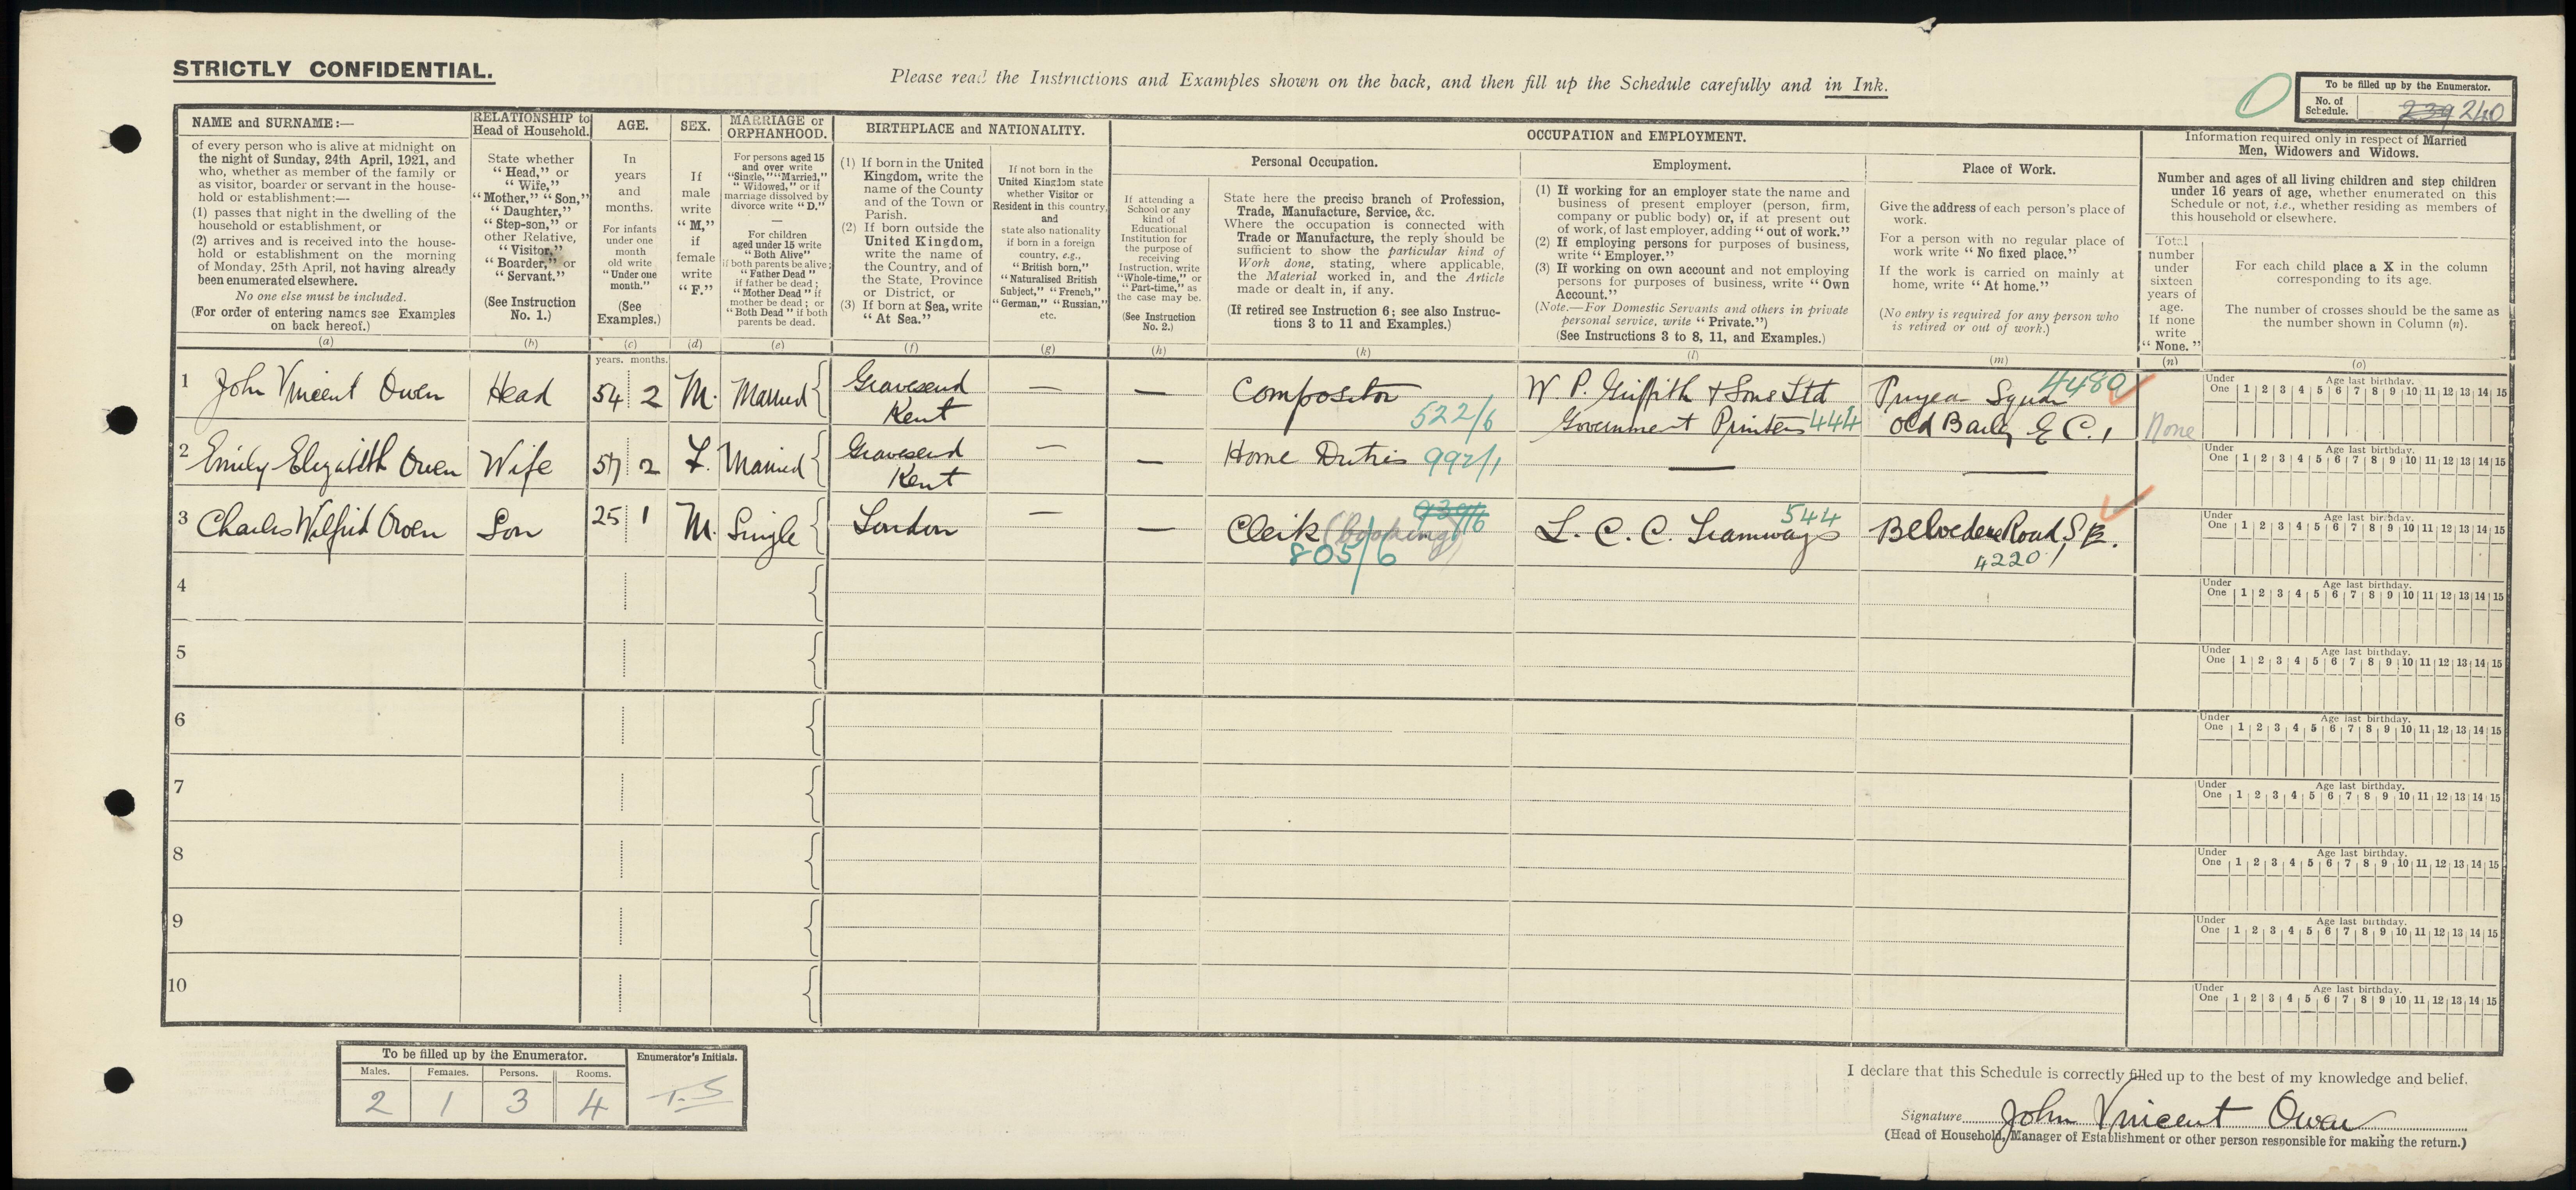 STRICTLY CONFIDENTIAL.
Please read the Instructions and Examples shown on the back, and then fill up the Schedule carefully and in Ink.
To be filled up by the Enumerator.
No. of Schedule. 239 240
NAME and SURNAME:—
of every person who is alive at midnight on
the night of Sunday, 24th April, 1921, and
who, whether as member of the family or
as visitor, boarder or servant in the house-
hold or establishment:—
(1) passes that night in the dwelling of the
household or establishment, or
(2) arrives and is received into the house-
hold or establishment on the morning
of Monday, 25th April, not having already
been enumerated elsewhere.
No one else must be included.
(For order of entering names see Examples
on back hereof.)
(a)
RELATIONSHIP to
Head of Household.
State whether
"Head," or
"Wife,"
"Mother," "Son,"
"Daughter,"
"Step-son," or
other Relative,
"Visitor,"
"Boarder," or
"Servant."
(See Instruction
No. 1.)
(b)
AGE.
In
years
and
months.
For infants
under one
month
old write
"Under one
month."
(See
Examples.)
(c)
years. months.
SEX.
If
male
write
"M,"
if
female
write
"F."
(d)
MARRIAGE or
ORPHANHOOD.
For persons aged 15
and over write
"Single," "Married,"
"Widowed," or if
marriage dissolved by
divorce write "D."
—
For children
aged under 15 write
"Both Alive"
if both parents be alive;
"Father Dead"
if father be dead;
"Mother Dead" if
mother be dead; or
"Both Dead" if both
parents be dead.
(e)
BIRTHPLACE and NATIONALITY.
(1) If born in the United
Kingdom, write the
name of the County
and of the Town or
Parish.
(2) If born outside the
United Kingdom,
write the name of
the Country, and of
the State, Province
or District, or
(3) If born at Sea, write
"At Sea."
(f)
If not born in the
United Kingdom state
whether Visitor or
Resident in this country,
and
state also nationality
if born in a foreign
country, e.g.,
"British born,"
"Naturalised British
Subject," "French,"
"German," "Russian,"
etc.
(g)
OCCUPATION and EMPLOYMENT.
If attending a
School or any
kind of
Educational
Institution for
the purpose of
receiving
Instruction, write
"Whole-time," or
"Part-time," as
the case may be.
(See Instruction
No. 2.)
(h)
Personal Occupation.
State here the precise branch of Profession,
Trade, Manufacture, Service, &c.
Where the occupation is connected with
Trade or Manufacture, the reply should be
sufficient to show the particular kind of
Work done, stating, where applicable,
the Material worked in, and the Article
made or dealt in, if any.
(If retired see Instruction 6; see also Instruc-
tions 3 to 11 and Examples.)
(k)
Employment.
(1) If working for an employer state the name and
business of present employer (person, firm,
company or public body) or, if at present out
of work, of last employer, adding "out of work."
(2) If employing persons for purposes of business,
write "Employer."
(3) If working on own account and not employing
persons for purposes of business, write "Own
Account."
(Note.—For Domestic Servants and others in private
personal service, write "Private.")
(See Instructions 3 to 8, 11, and Examples.)
(l)
Place of Work.
Give the address of each person's place of
work.
For a person with no regular place of
work write "No fixed place."
If the work is carried on mainly at
home, write "At home."
(No entry is required for any person who
is retired or out of work.)
(m)
Information required only in respect of Married
Men, Widowers and Widows.
Number and ages of all living children and step children
under 16 years of age, whether enumerated on this
Schedule or not, i.e., whether residing as members of
this household or elsewhere.
Total
number
under
sixteen
years of
age.
If none
write
"None."
(n)
For each child place a X in the column
corresponding to its age.
The number of crosses should be the same as
the number shown in Column (n).
(o)
1 John Vincent Owen Head 54 2 M. Married Gravesend Kent — — Compositor 522/6 W. P. Griffith & Sons Ltd Government Printers 444 Squar 4489 Old Bailey E C.1 None
Under One Age last birthday. 1 2 3 4 5 6 7 8 9 10 11 12 13 14 15
2 Emily Elizabeth Owen Wife 57 2 F. Married Gravesend Kent — — Home Duties 992/1 — —
Under One Age last birthday. 1 2 3 4 5 6 7 8 9 10 11 12 13 14 15
3 Charles Wilfrid Owen Son 25 1 M. Single London — — Clerk (booking) 939/6 805/6 L. C. C. Tramways 544 Belvedere Road, S.E.1 4220
Under One Age last birthday. 1 2 3 4 5 6 7 8 9 10 11 12 13 14 15
4
Under One Age last birthday. 1 2 3 4 5 6 7 8 9 10 11 12 13 14 15
5
Under One Age last birthday. 1 2 3 4 5 6 7 8 9 10 11 12 13 14 15
6
Under One Age last birthday. 1 2 3 4 5 6 7 8 9 10 11 12 13 14 15
7
Under One Age last birthday. 1 2 3 4 5 6 7 8 9 10 11 12 13 14 15
8
Under One Age last birthday. 1 2 3 4 5 6 7 8 9 10 11 12 13 14 15
9
Under One Age last birthday. 1 2 3 4 5 6 7 8 9 10 11 12 13 14 15
10
Under One Age last birthday. 1 2 3 4 5 6 7 8 9 10 11 12 13 14 15
To be filled up by the Enumerator. Enumerator's Initials.
Males. Females. Persons. Rooms.
2 1 3 4 T.S
I declare that this Schedule is correctly filled up to the best of my knowledge and belief.
Signature John Vincent Owen
(Head of Household, Manager of Establishment or other person responsible for making the return.)